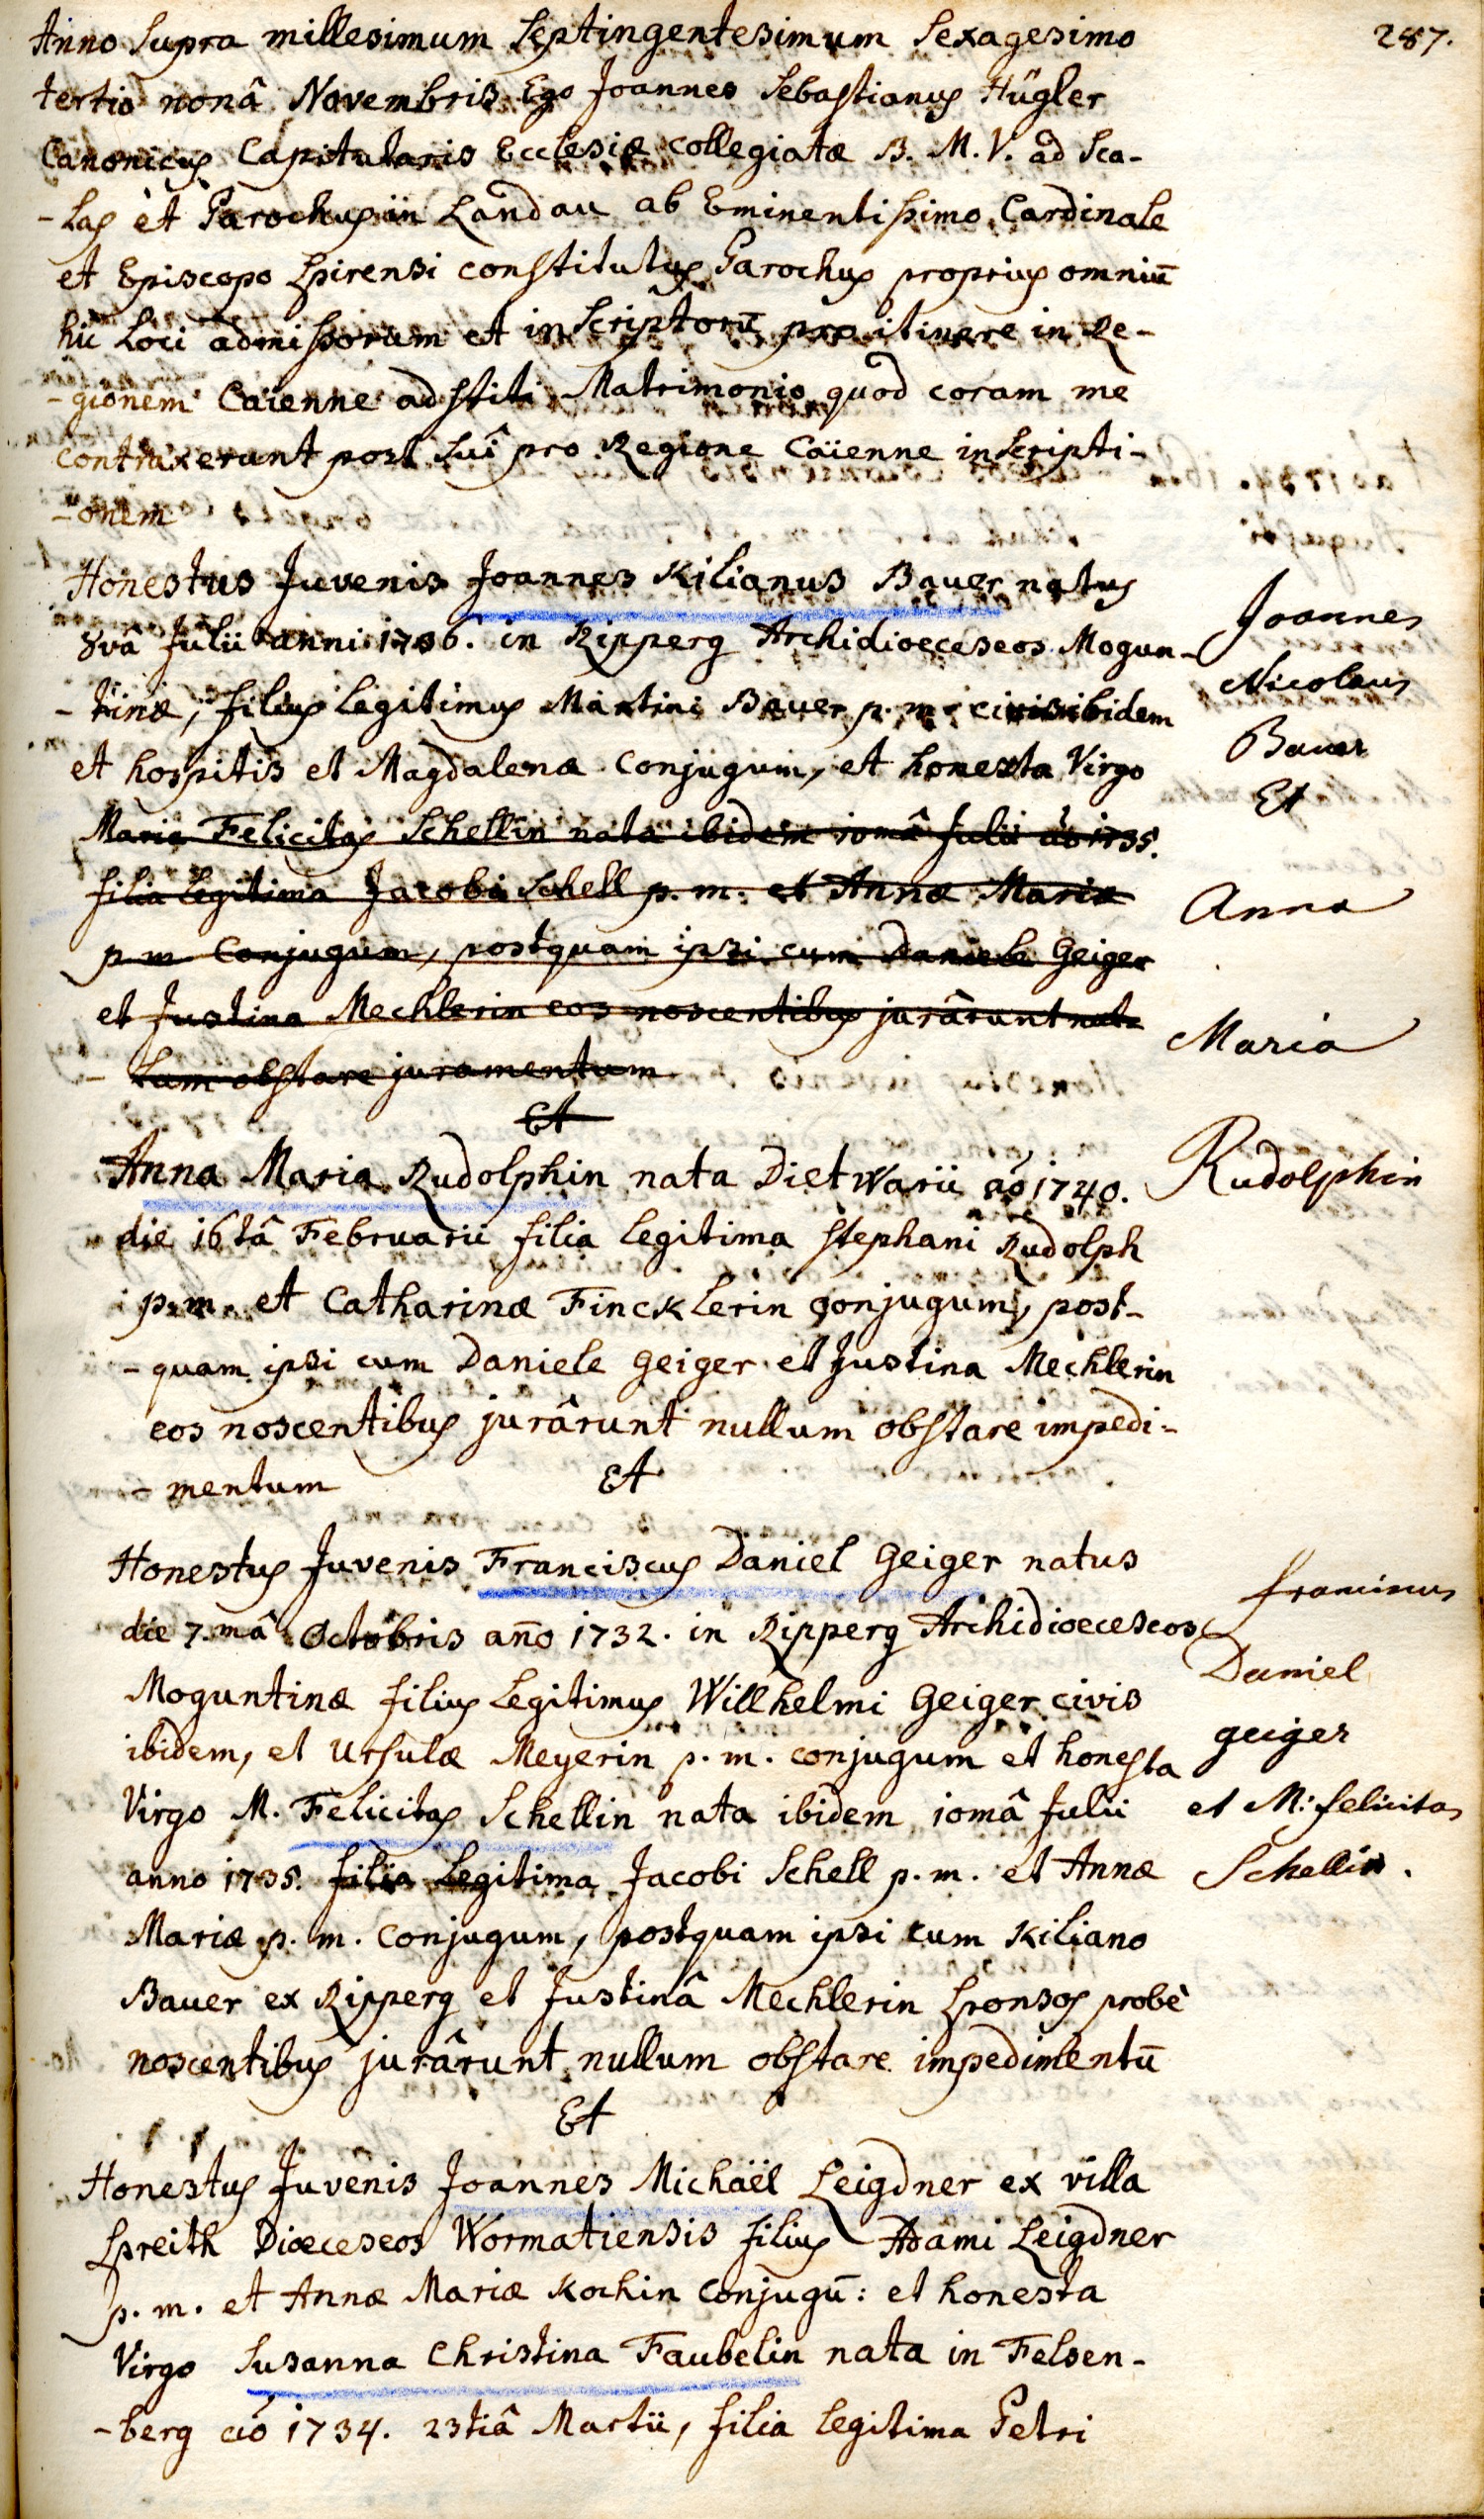 287.
Anno supra millesimum septingentesimum sexagesimo
tertio nonâ Novembris Ego Joannes Sebastianus Hügler
Canonicus Capitularis Ecclesiæ collegiatæ B. M. V. ad Sca-
-las et Parochus in Landau ab Eminentissimo Cardinale
et Episcopo Spirensi constitutus Parochus proprius omniū
hic loci admissorum et inscriptorū pro itinere in Re-
-gionem Caïenne adstiti Matrimonio quod coram me
contraxerunt post suî pro Regione Caïenne inscripti-
-onem
Honestus Juvenis Joannes Kilianus Bauer natus
8vâ Julii anni 1736. in Ripperg Archidioeceseos Mogun-
-tinæ, filius legitimus Martini Bauer p. m. civis ibidem
et hospitis et Magdalenæ conjugum, et honesta Virgo
Maria Felicitas Schellin nata ibidem 10mâ Julii aō 1735.
filia legitima Jacobi Schell p. m. et Annæ Mariæ
p. m. Conjugum, postquam ipsi cum Daniele Geiger
et Justina Mechlerin eos noscentibus jurârunt nul-
-lum obstare juramentum
Et
Anna Maria Rudolphin nata Dietwarii aō 1740.
die 16tâ Februarii filia legitima Stephani Rudolph
p. m. et Catharinæ Fincklerin conjugum, post-
-quam ipsi cum Daniele Geiger et Justina Mechlerin
eos noscentibus jurârunt nullum obstare impedi-
-mentum Et
Honestus Juvenis Franciscus Daniel Geiger natus
die 7.mâ Octobris anō 1732. in Ripperg Archidioeceseos
Moguntinæ filius legitimus Willhelmi Geiger civis
ibidem, et Ursulæ Meyerin p. m. conjugum et honesta
Virgo M. Felicitas Schellin nata ibidem 10mâ Julii
anno 1735. filia legitima Jacobi Schell p. m. et Annæ
Mariæ p. m. Conjugum, postquam ipsi cum Kiliano
Bauer ex Ripperg et Justinâ Mechlerin sponsos probè
noscentibus jurârunt nullum obstare impedimentū
Et
Honestus Juvenis Joannes Michaël Leigdner ex villa
Spreith Dioeceseos Wormatiensis filius Adami Leigdner
p. m. et Annæ Mariæ Kochin conjugū: et honesta
Virgo Susanna Christina Faubelin nata in Felsen-
-berg aō 1734. 23tiâ Martii, filia legitima Petri
Joannes
Nicolaus
Bauer
Et
Anna
Maria
Rudolphin
franciscus
Daniel
geiger
et M: felicitas
Schellin.